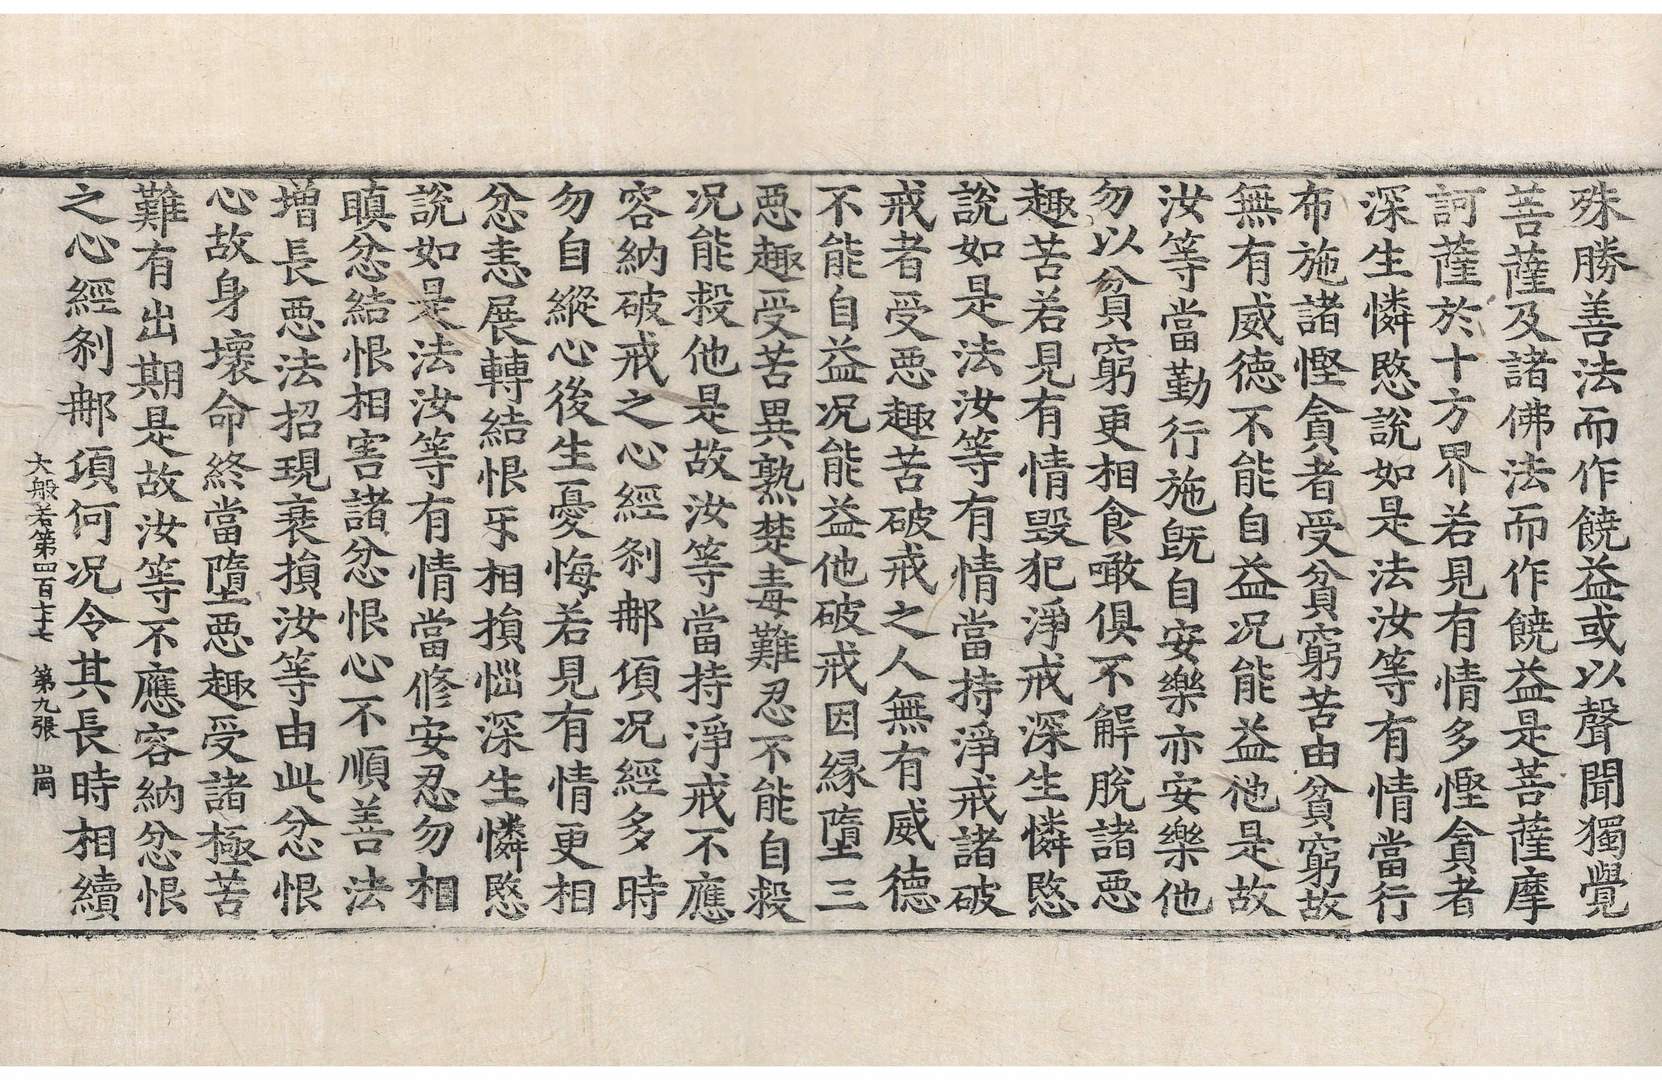 殊勝善法而作饒益或以聲聞獨覺
菩薩及諸佛法而作饒益是菩薩摩
訶薩於十方界若見有情多慳貪者
深生憐愍說如是法汝等有情當行
布施諸慳貪者受貧窮苦由貧窮故
無有威德不能自益况能益他是故
汝等當勤行施旣自安樂亦安樂他
勿以貧窮更相食噉俱不解脫諸惡
趣苦若見有情毀犯淨戒深生憐愍
說如是法汝等有情當持淨戒諸破
戒者受惡趣苦破戒之人無有威德
不能自益况能益他破戒因緣墮三
惡趣受苦異熟楚毒難忍不能自救
况能救他是故汝等當持淨戒不應
容納破戒之心經刹那頃况經多時
勿自縱心後生憂悔若見有情更相
忿恚展轉結恨互相損惱深生憐愍
說如是法汝等有情當修安忍勿相
瞋忿結恨相害諸忿恨心不順善法
增長惡法招現衰損汝等由此忿恨
心故身壞命終當墮惡趣受諸極苦
難有出期是故汝等不應容納忿恨
之心經刹那頃何况令其長時相續
大般若第四百七十七 第九張 崗